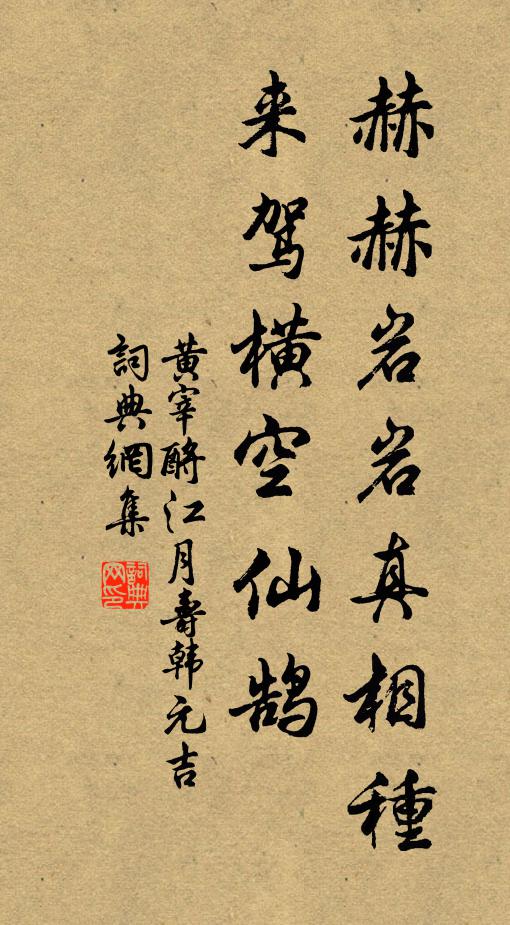 赫赫岩岩真相種
来驾橫空仙鹄
黄宰酹江月壽韩元吉
詞典網集
詞典网印